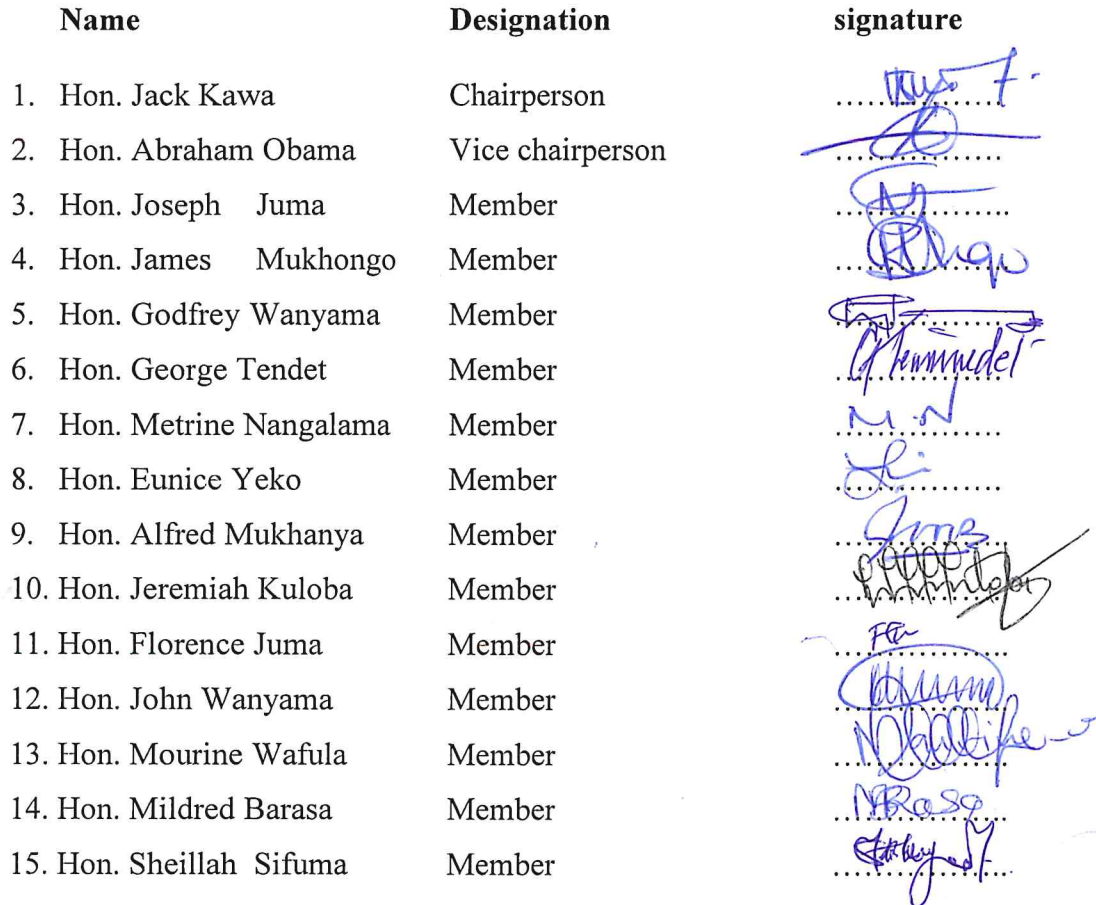 Name Designation signature
1. Hon. Jack Kawa Chairperson
2. Hon. Abraham Obama Vice chairperson
3. Hon. Joseph Juma Member
4. Hon. James Mukhongo Member
5. Hon. Godfrey Wanyama Member
6. Hon. George Tendet Member
7. Hon. Metrine Nangalama Member M.N
8. Hon. Eunice Yeko Member
9. Hon. Alfred Mukhanya Member
10. Hon. Jeremiah Kuloba Member
11. Hon. Florence Juma Member
12. Hon. John Wanyama Member
13. Hon. Mourine Wafula Member
14. Hon. Mildred Barasa Member
15. Hon. Sheillah Sifuma Member